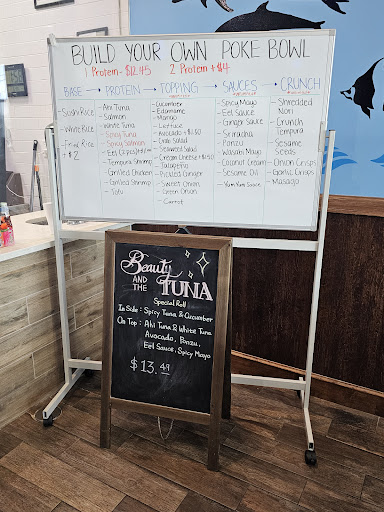 BUILD YOUR OWN POKE BOWL
1 Protein - $12.45 2 Protein + $4
BASE → PROTEIN → TOPPING → SAUCES → CRUNCH
- Sushi Rice
- White Rice
- Fried Rice
$2
- Ahi Tuna
- Salmon
- White Tuna
- Spicy Tuna
- Spicy Salmon
- Tempura Shrimp
- Grilled Chicken
- Grilled Shrimp
- Tofu
- Cucumber
- Edamame
- Mango
- Lettuce
- Avocado + $1.50
- Crab Salad
- Seaweed Salad
- Cream Cheese + $1.50
- Jalapeño
- Pickled Ginger
- Sweet Onion
- Green Onion
- Carrot
- Spicy Mayo
- Eel Sauce
- Ginger Sauce
- Sriracha
- Ponzu
- Wasabi Mayo
- Coconut Cream
- Sesame Oil
- Yum Yum Sauce
- Shredded Nori
- Crunch Tempura
- Sesame Seeds
- Onion Crisps
- Garlic Crisps
- Masago
Beauty
AND THE TUNA
Special Roll
In Side : Spicy Tuna & Cucumber
On Top : Ahi Tuna & White Tuna
Avocado, Ponzu,
Eel Sauce, Spicy Mayo
$13.49